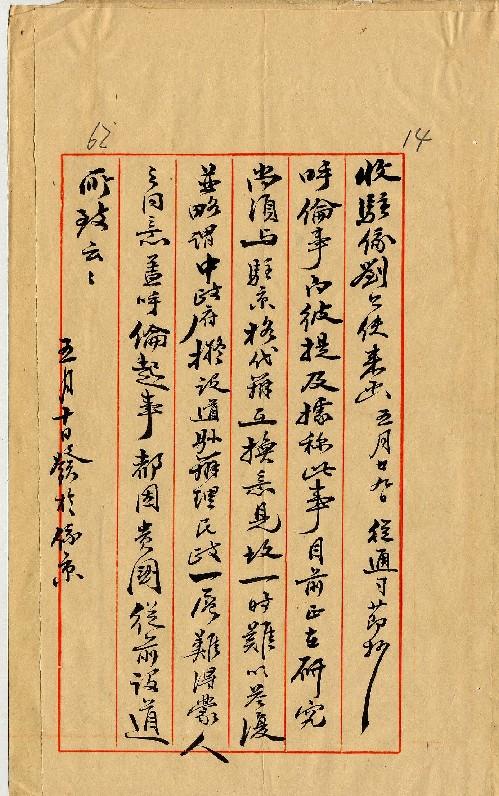 62
14
收駐俄劉公使來函 五月廿九日 從通可節抄
呼倫事向彼提及據稱此事目前正在研究
尚須与駐京格代辦互換意見故一時難以答復
並略謂中政府擬設道尹辦理民政一层難得蒙人
之同意蓋呼倫起事都因贵國從前設道
所致云云
五月十日發於俄京